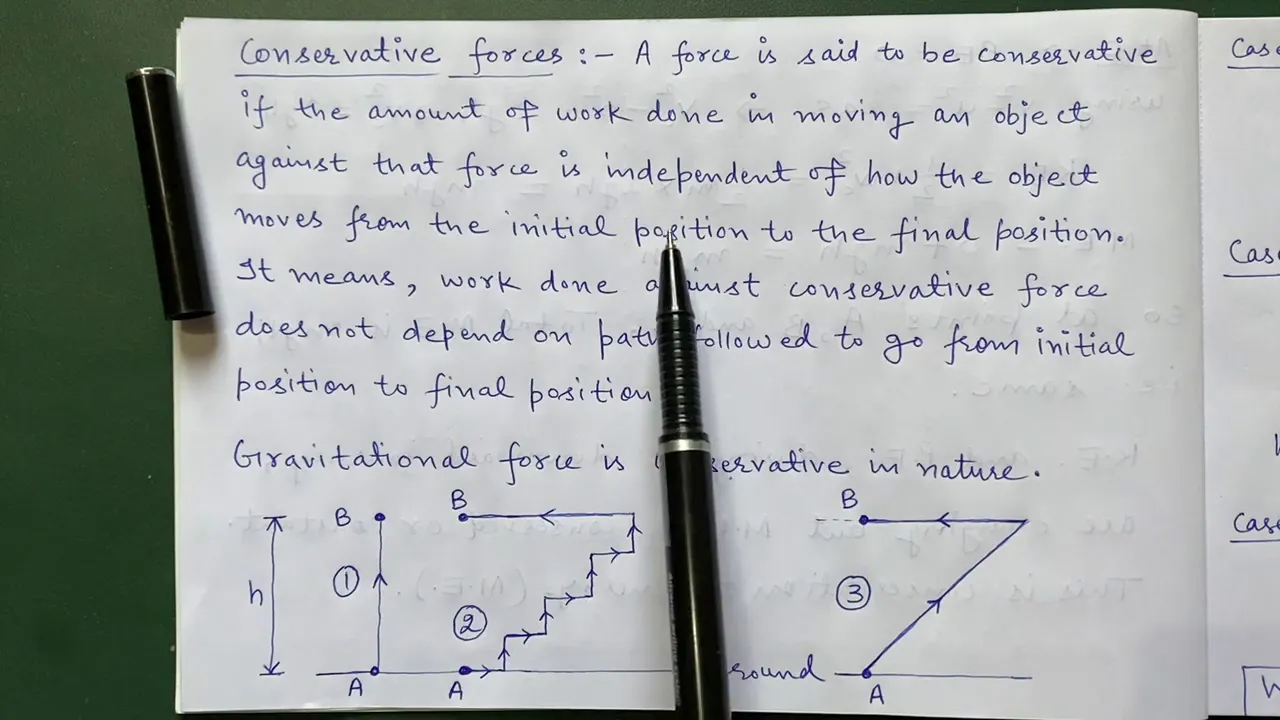 Conservative forces :- A force is said to be conservative
if the amount of work done in moving an object
against that force is independent of how the object
moves from the initial position to the final position.
It means, work done against conservative force
does not depend on path followed to go from initial
position to final position
Gravitational force is conservative in nature.
B
B
B
h
①
②
③
A
A
round
A
Case
Case
Case
W